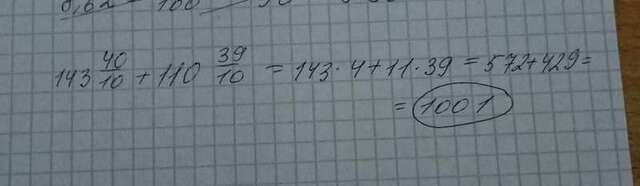 143 40/10 + 110 39/10 = 143·4+11·39 = 572+429=
= 1001